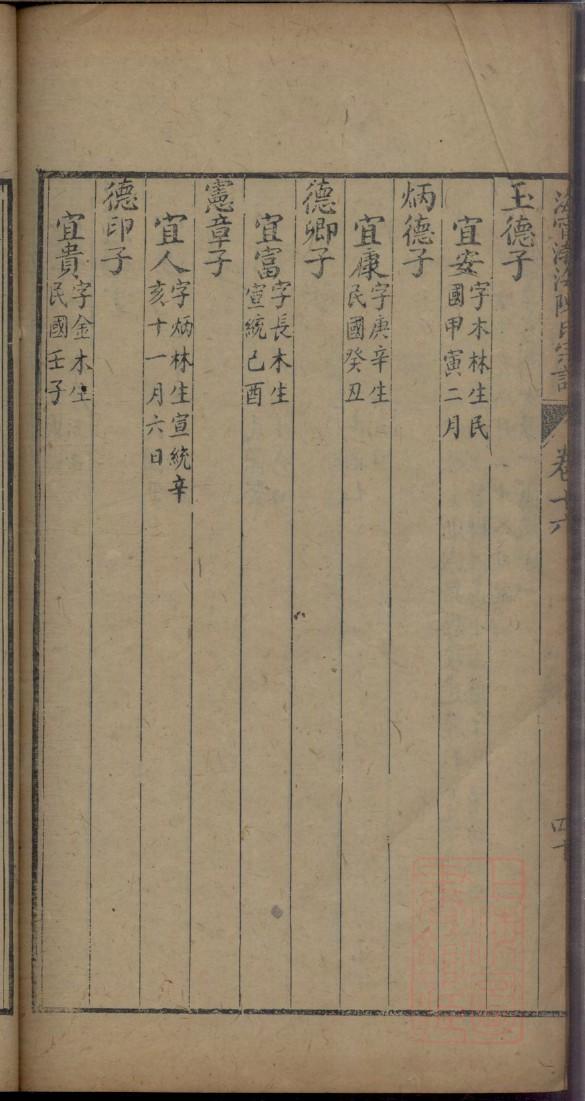 卷十六
玉德子
宜安 字木林生民
國甲寅二月
炳德子
宜康 字庚辛生
民國癸丑
德卿子
宜富 字長木生
宣統己酉
憲章子
宜人 字炳林生宣統辛
亥十一月六日
德印子
宜貴 字金木生
民國壬子